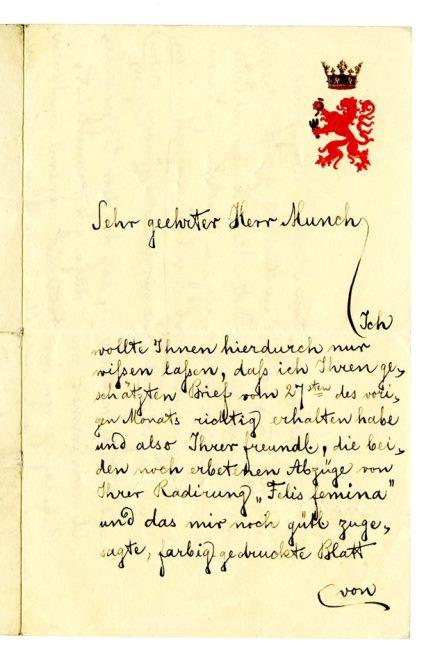 Sehr geehrter Herr Munch,
Ich
wollte Ihnen hierdurch nur
wißen laßen, daß ich Ihren ge-
schätzten Brief vom 27sten des vori-
gen Monats richtig erhalten habe
und also Ihrer freundl., die bei-
den noch erbetenen Abzüge von
Ihrer Radirung „Felis femina"
und das mir noch gütl. zuge-
sagte, farbig gedruckte Blatt
von